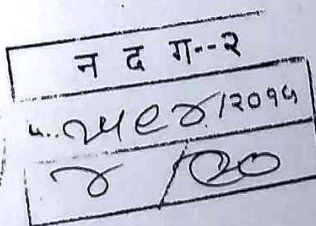 न द ग--२
२५९४/२०१५
४ /